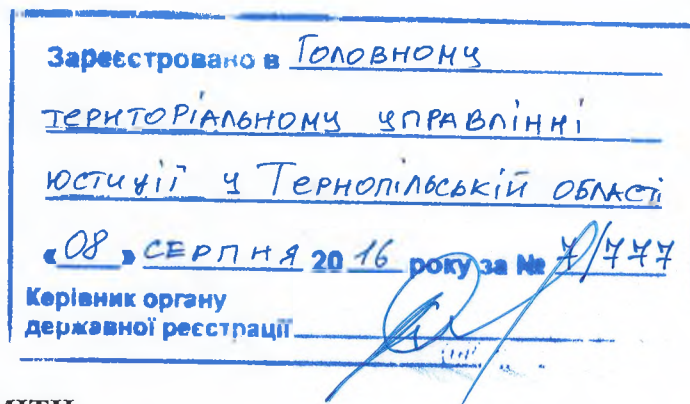 Зареєстровано в Головному
територіальному управлінні
юстиції у Тернопільській області
«08» серпня 2016 року за № 7/777
Керівник органу
державної реєстрації